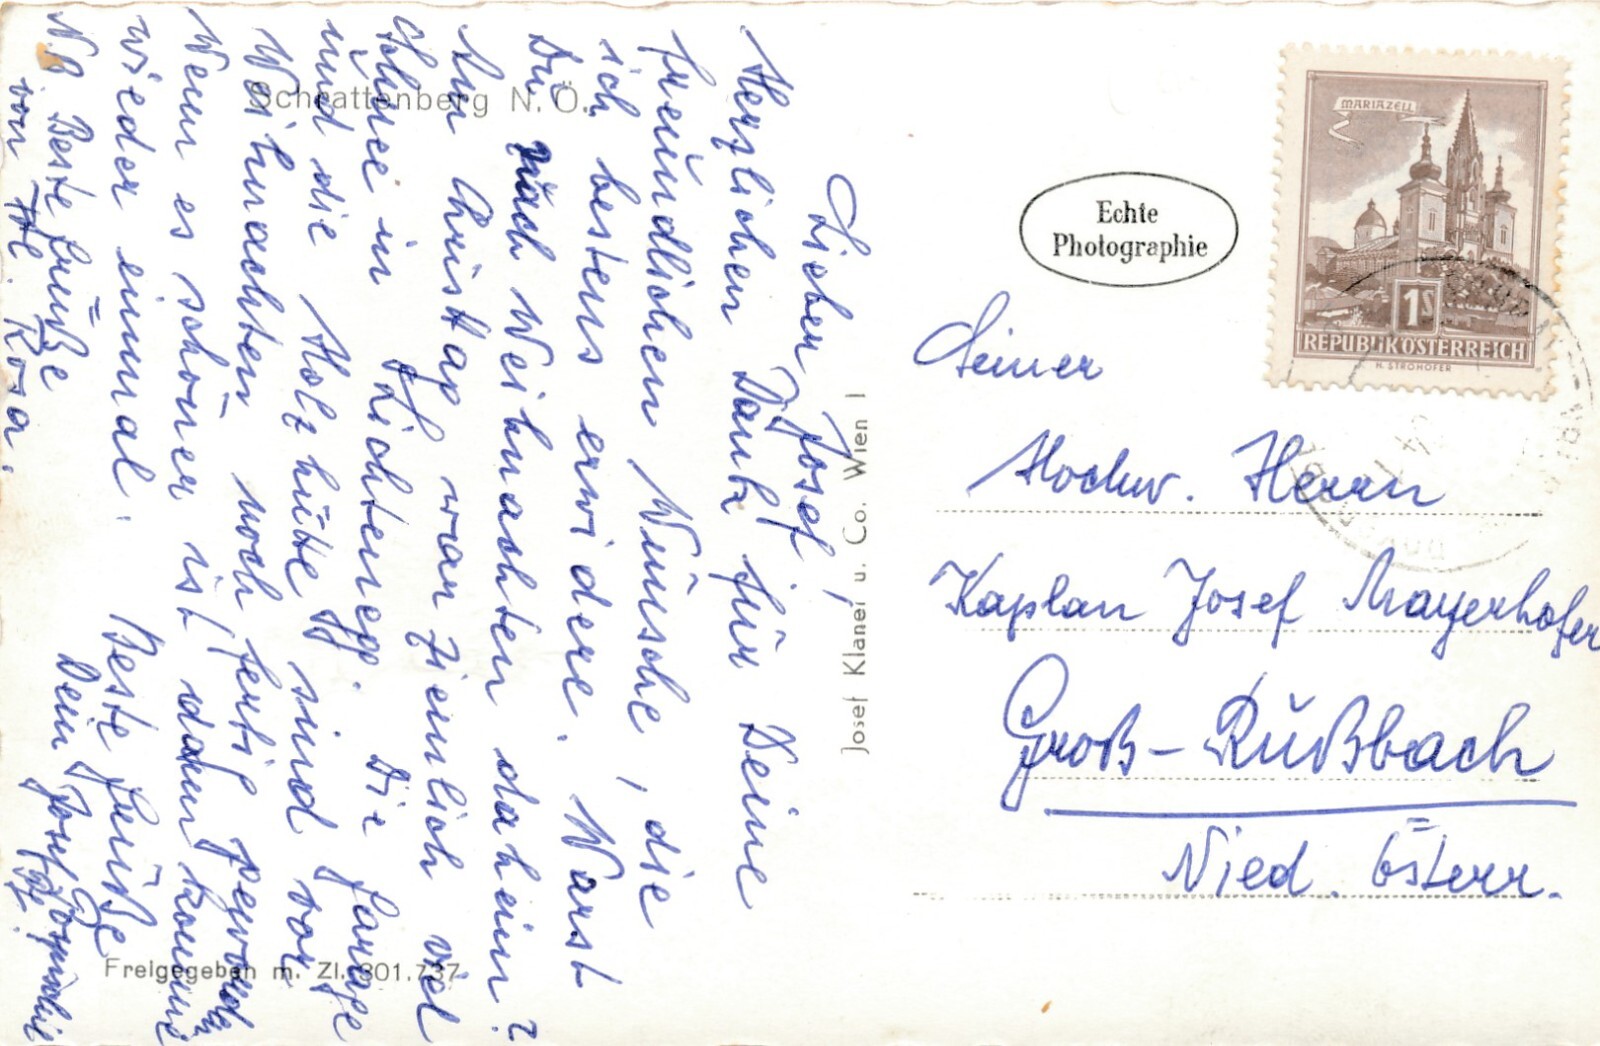 Schrattenberg N. Ö.
Lieber Josef,
Herzlichen Dank für Deine
freundlichen Wünsche, die
ich bestens erwidere. Warst
Du nach Weihnachten daheim?
Am Christtag war ziemlich viel
Schnee in Lichtenegg. Die Garage
und die Holzhütte sind vor
Weihnachten noch fertig geworden
Wenn es schöner ist, dann komme
wieder einmal. Beste Grüße
Dein Josef
NB Beste Grüße
von Hl. Rosa.
Freigegeben m. Zl. 301.737
Josef Klaner u. Co. Wien I
Echte
Photographie
MARIAZELL
1S
REPUBLIK ÖSTERREICH
H. STROHOFER
Seiner
Hochw. Herrn
Kaplan Josef Mayerhofer
Groß-Rußbach
Nied. Österr.